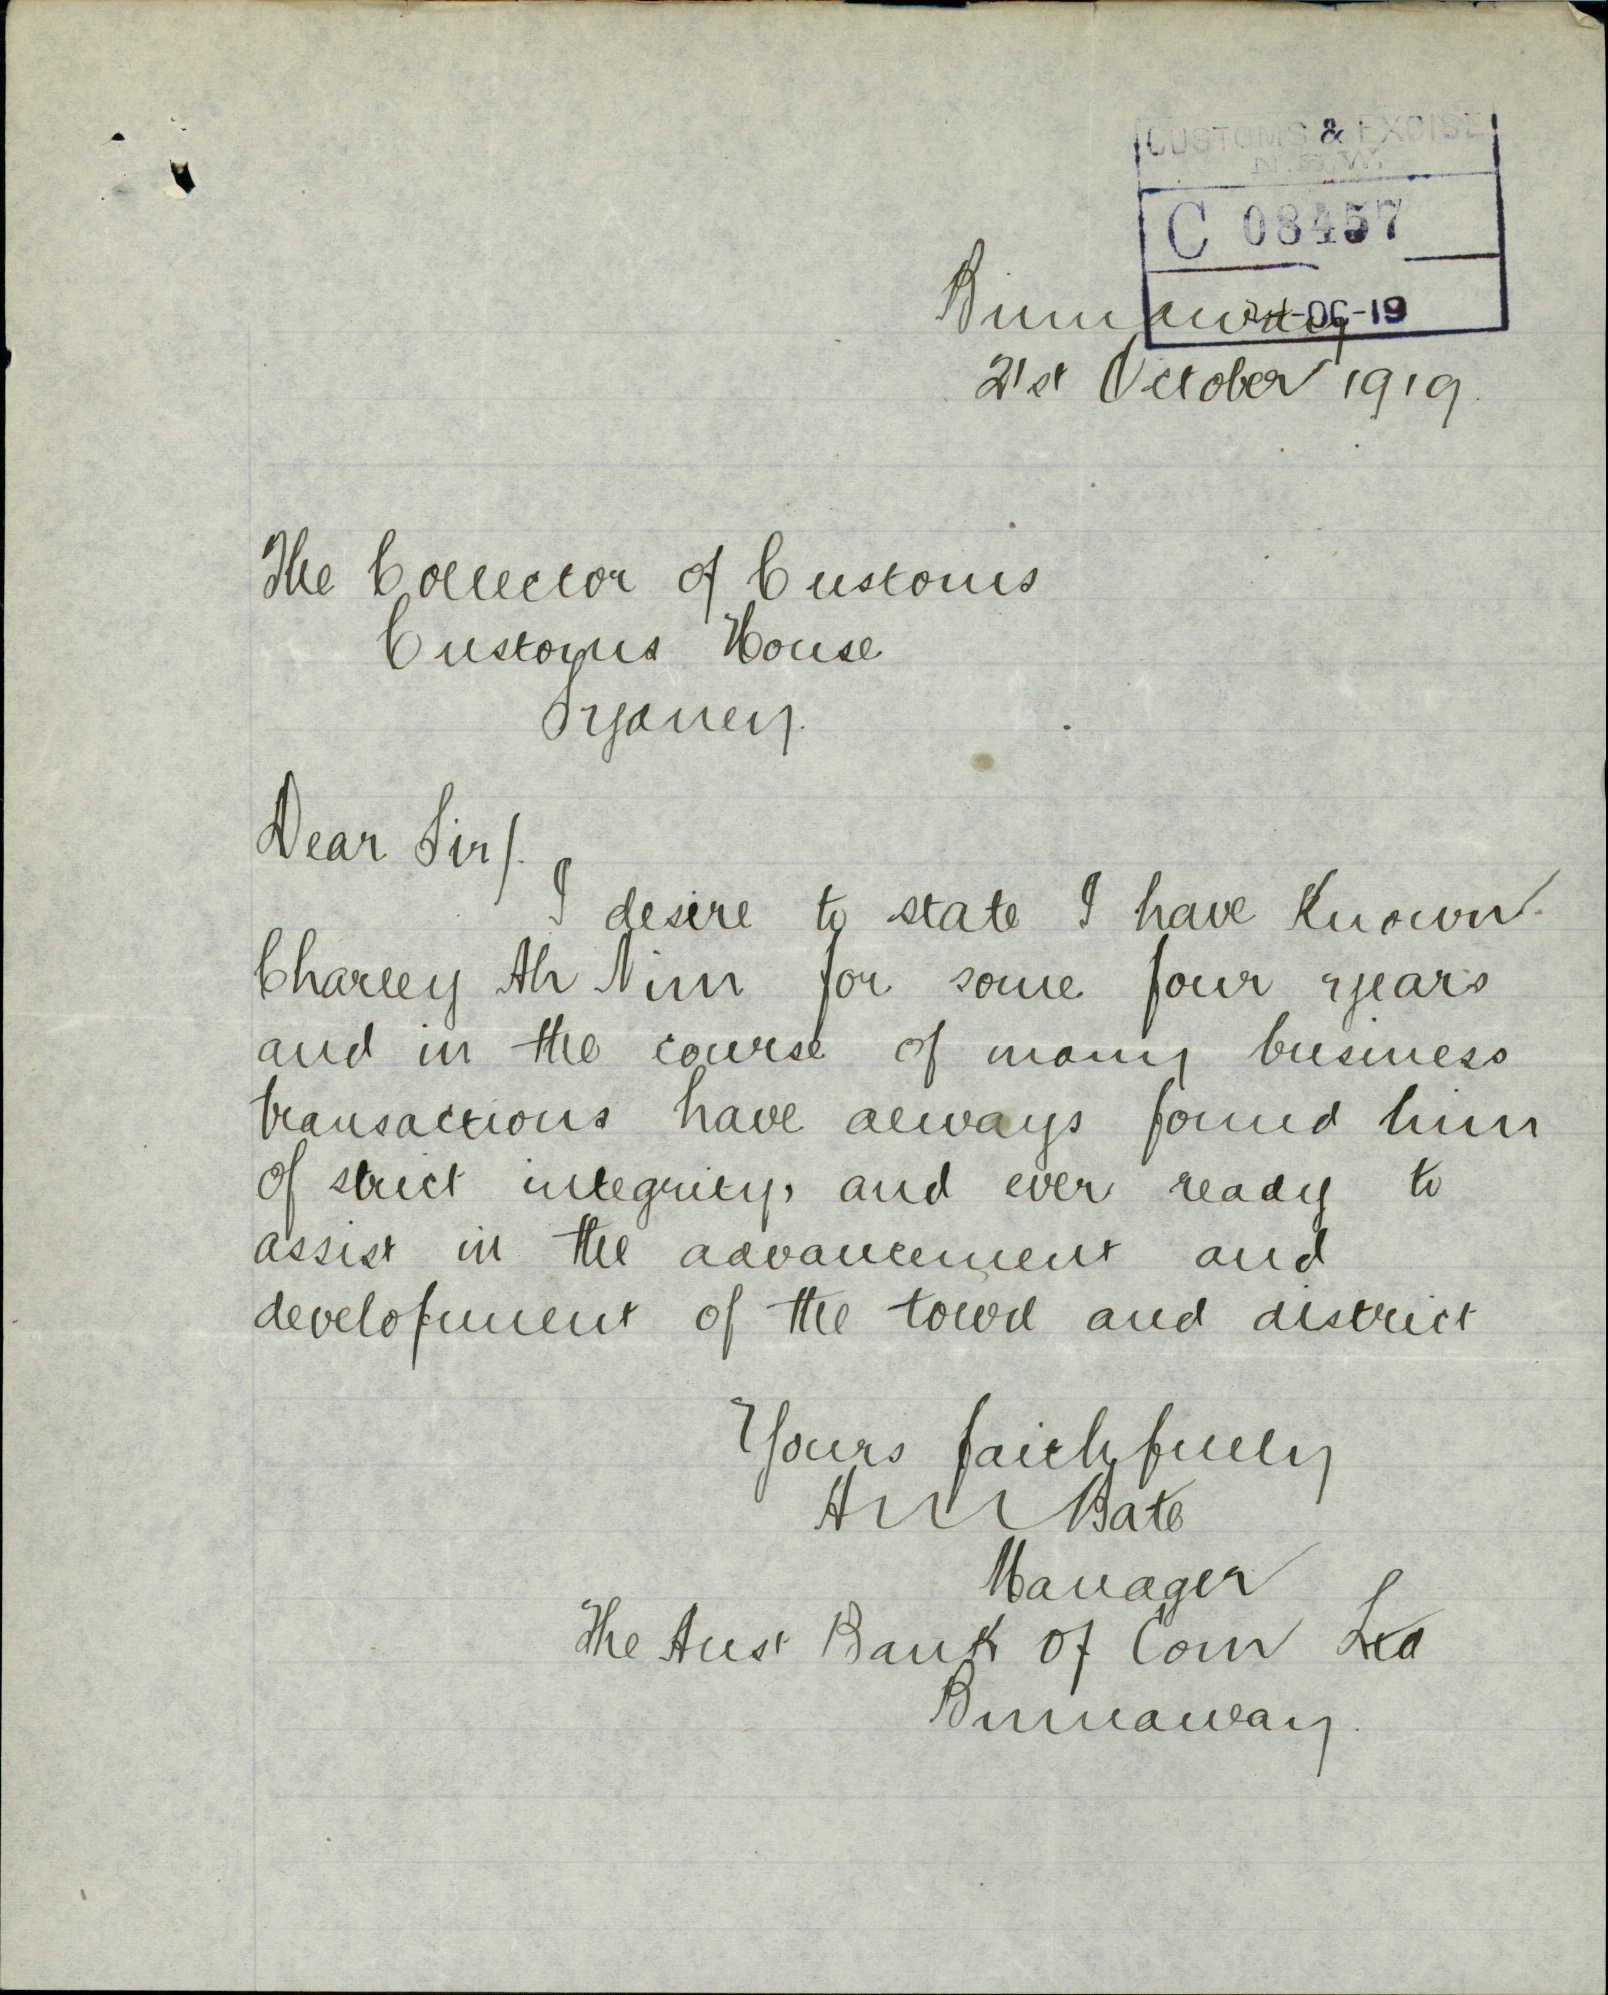 CUSTOMS & EXCISE
N.S.W.
C 08457
-OC-19
Binnaway
21st October 1919.
The Collector of Customs
Customs House
Sydney.
Dear Sir/.
I desire to state I have known
Charley Ah Nim for some four years
and in the course of many business
transactions have always found him
of strict integrity, and ever ready to
assist in the advancement and
development of the town and district
Yours faithfully
Bate
Manager
The Aust Bank of Com Ltd
Binnaway.